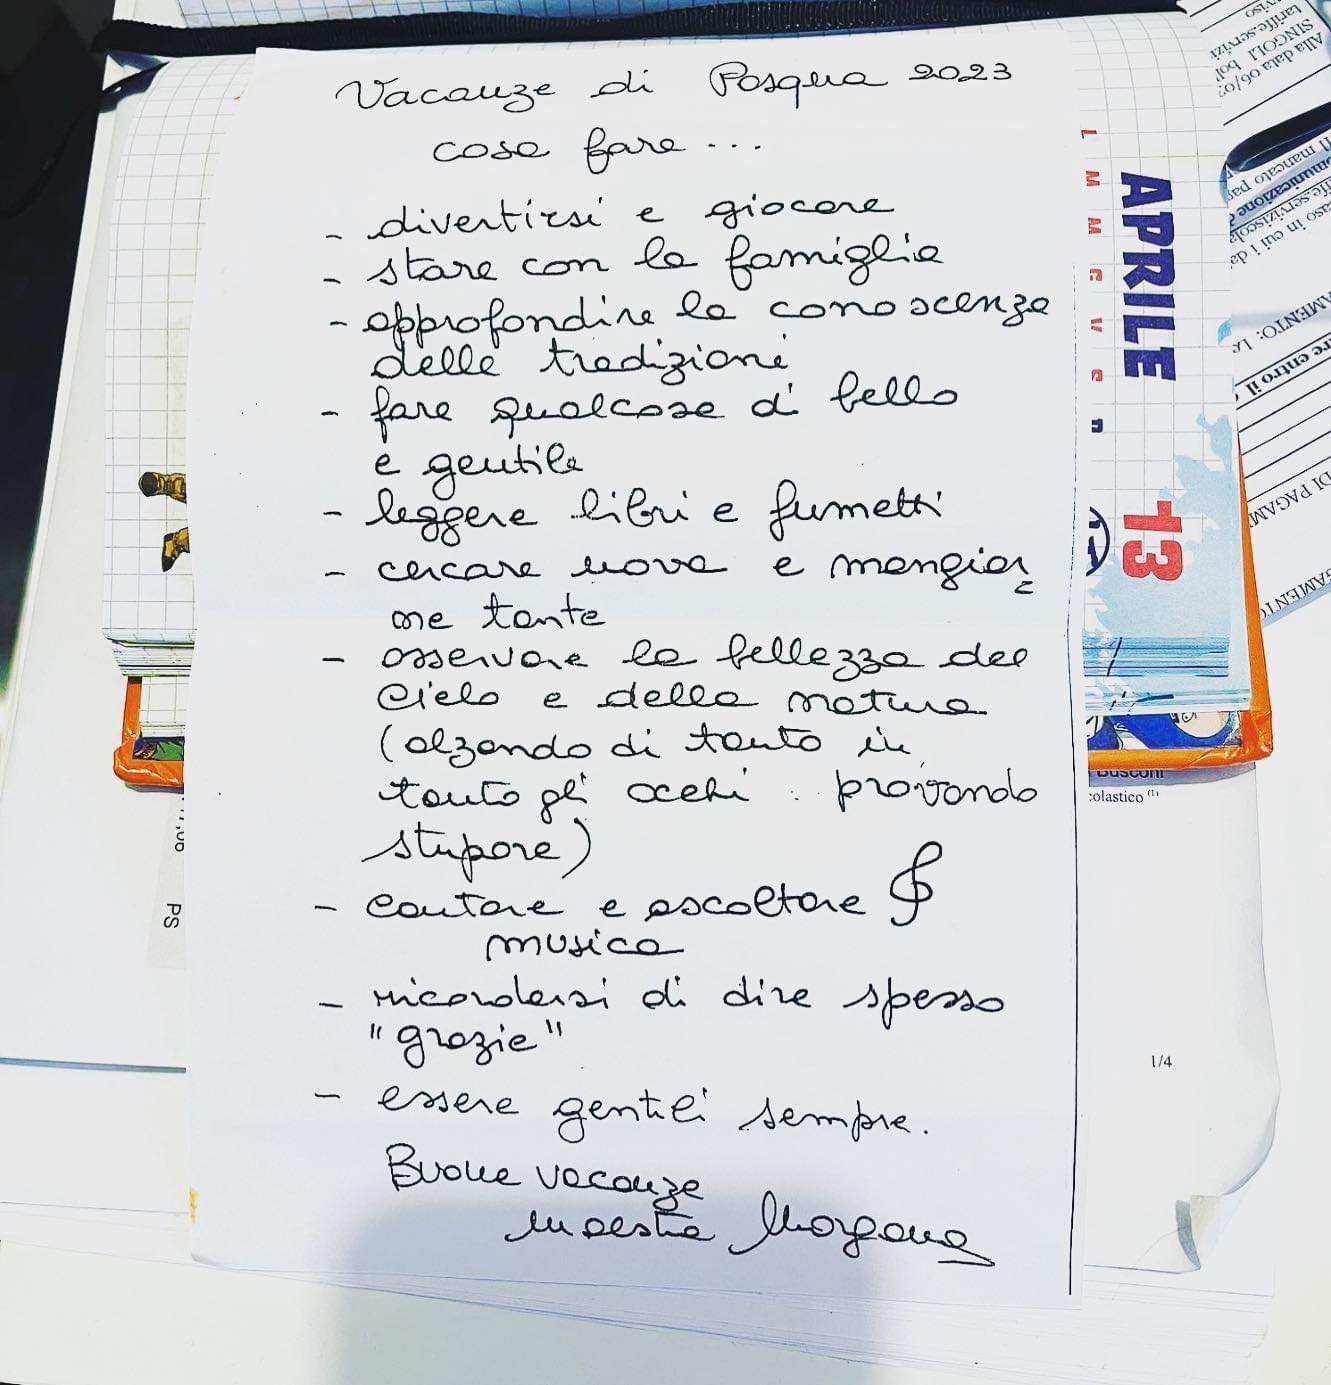 Vacanze di Pasqua 2023
cosa fare...
- divertirsi e giocare
- stare con la famiglia
- approfondire la conoscenza
delle tradizioni
- fare qualcosa di bello
e gentile
- leggere libri e fumetti
- cercare uova e mangiar
ne tante
- osservare la bellezza del
cielo e della natura
(alzando di tanto in
tanto gli occhi provando
stupore)
- cantare e ascoltare
musica
- ricordarsi di dire spesso
"grazie"
- essere gentili sempre.
Buone vacanze
maestra Morgana
L M M G V S D
APRILE
13
Alla data 06/0
SINGOLI bol
tariffe.servizi
viso
Il mancato pag
omunicazione
ffe.serviziscola
aso in cui i da
AMENTO: Le
re entro il
DI PAGAM
GAMENTO
Busconi
colastico (1)
PS
1/4